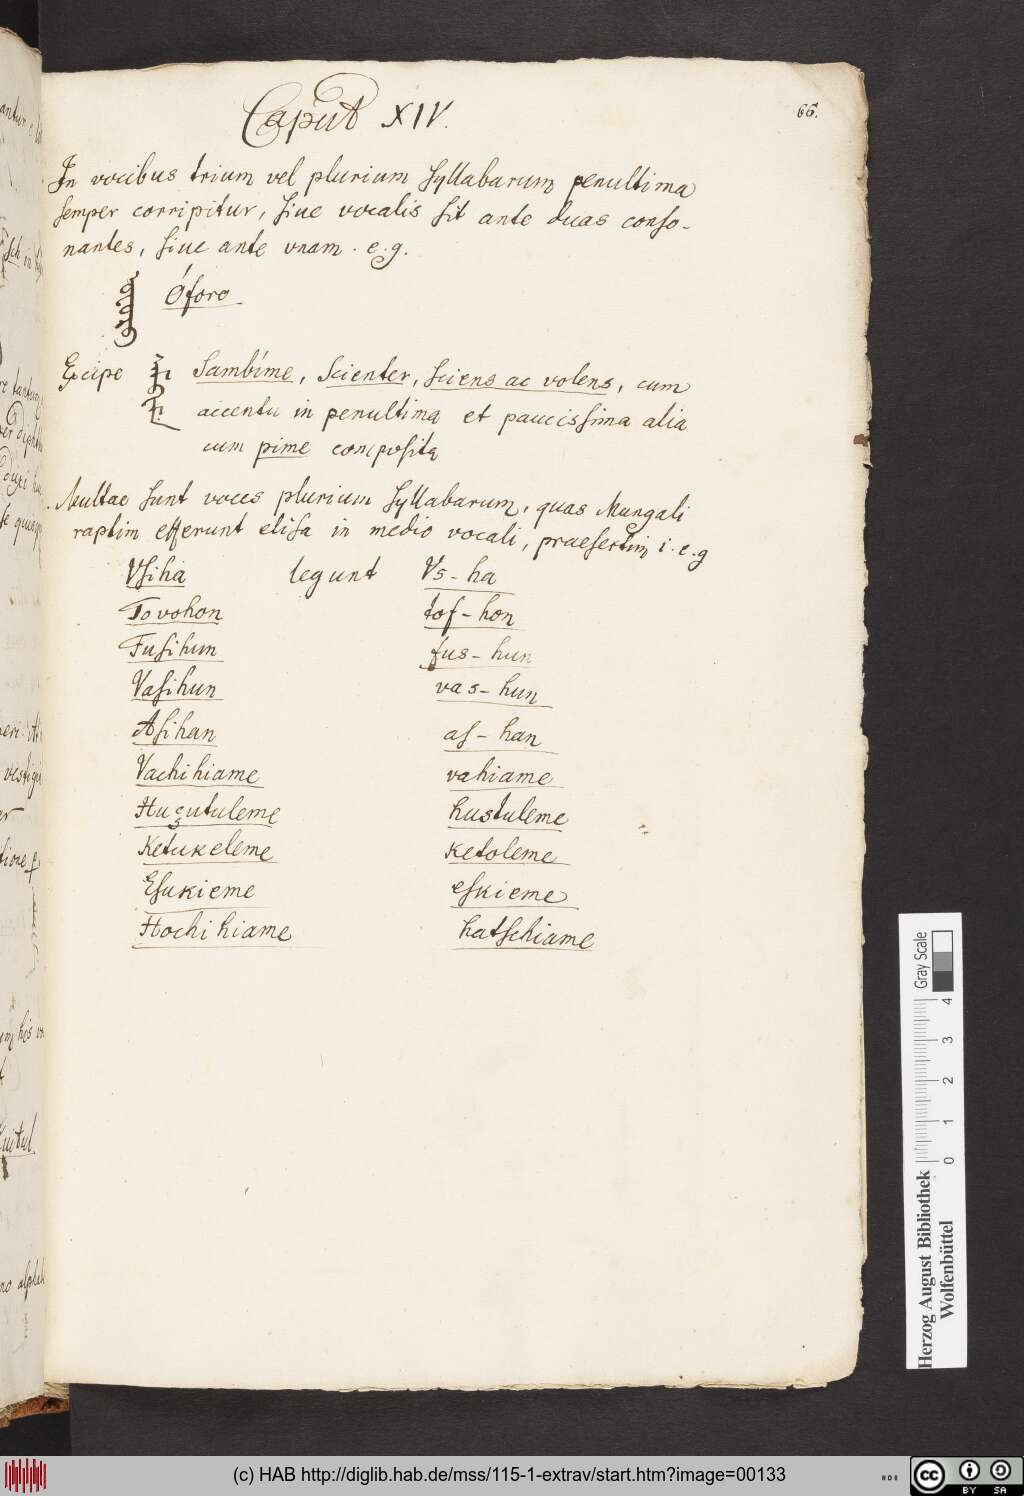 66.
Caput XIV.
In vocibus trium vel plurium syllabarum penultima
semper corripitur, siue vocalis sit ante duas conso-
nantes, siue ante vnam. e.g.
Óforo
Excipe Sambíme, scienter, sciens ac volens, cum
accentu in penultima et paucissima alia
cum pime composita
Multae sunt voces plurium syllabarum, quas Mungali
raptim efferunt elisa in medio vocali, praesertim i. e.g
Vsiha legunt Vs-ha
Tovohon tof-hon
Fusihun fus-hun
Vasihun vas-hun
Asihan as-han
Vachihiame vahiame
Huszutuleme hustuleme
Ketukeleme ketoleme
Esukieme eskieme
Hochihiame hatschiame
Gray Scale
0 1 2 3 4
Herzog August Bibliothek
Wolfenbüttel
(c) HAB http://diglib.hab.de/mss/115-1-extrav/start.htm?image=00133
cc BY SA